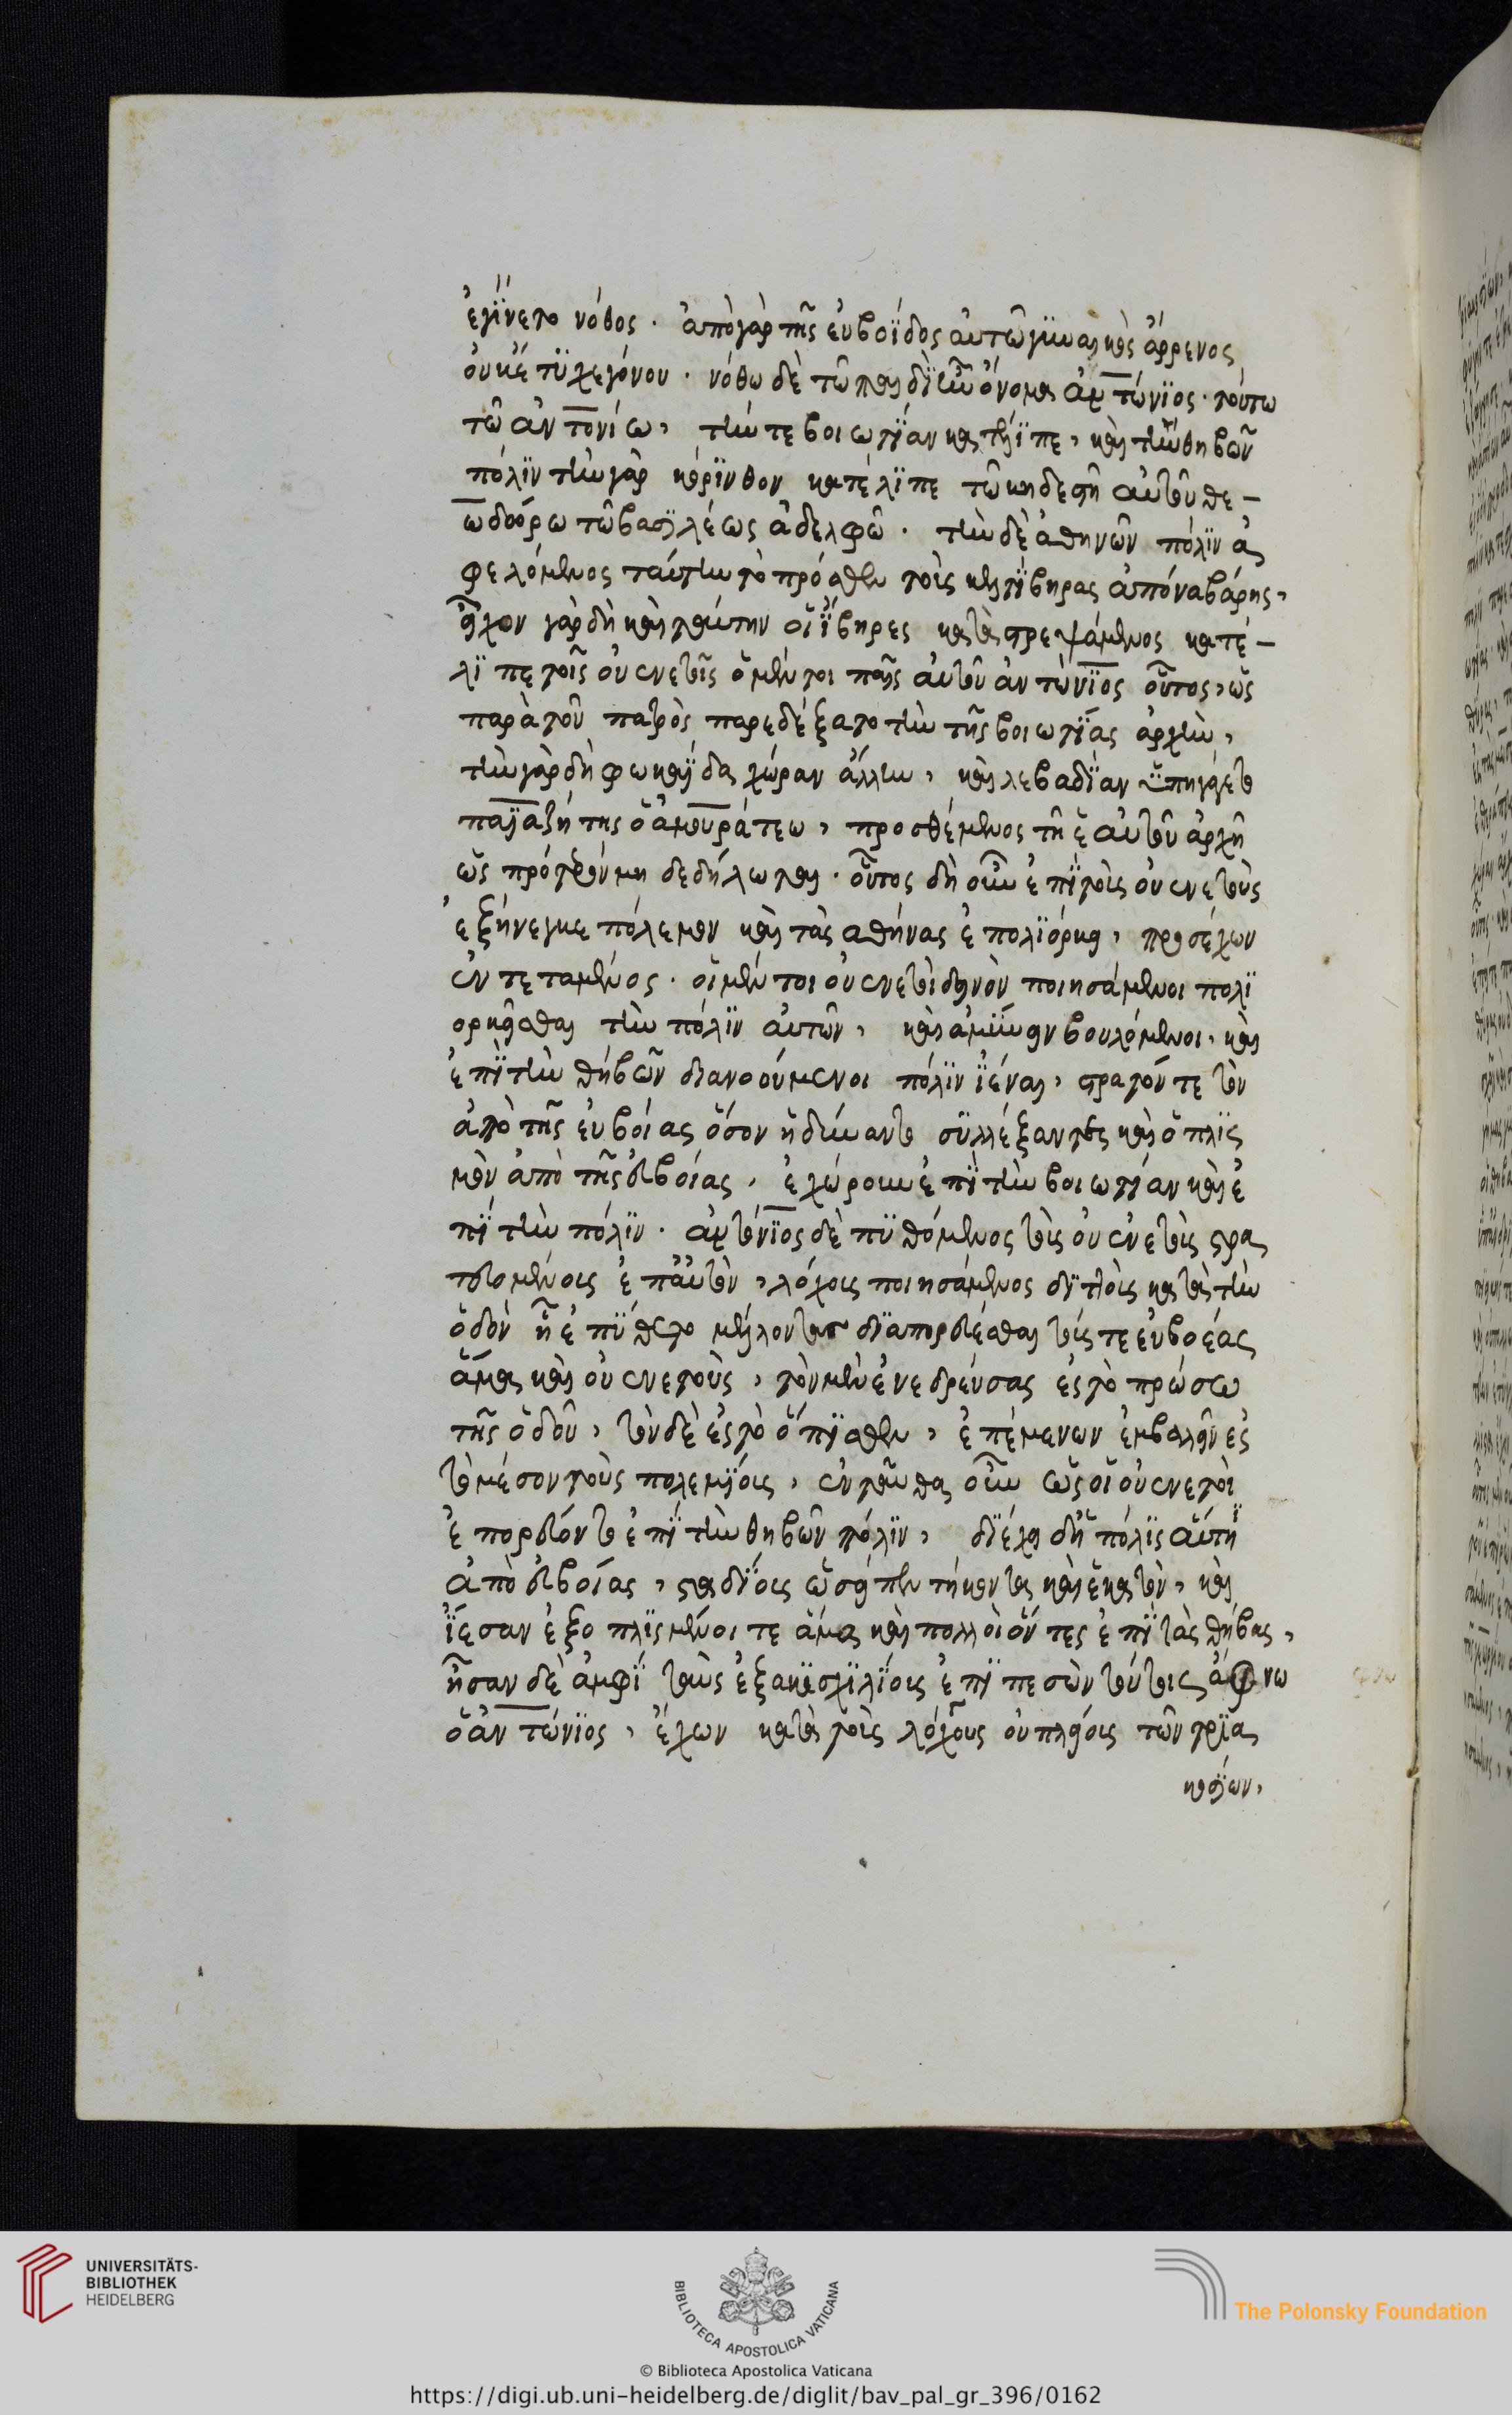 ἐγίνετο νόθος. ἀπὸ γὰρ τῆς εὐβοΐδος αὐτῷ γυναικὸς ἄρρενος
οὐκ ἐτύχε γόνου. νόθῳ δὲ τῷ παιδὶ ὄνομα ἀντώνιος. τούτῳ
τῷ ἀντονίῳ, τήν τε βοιωτίαν κατέλιπε, καὶ τὴν θηβῶν
πόλιν τὴν γὰρ κόρινθον κατέλιπε τῷ κηδεστῇ αὐτοῦ θε-
ωδόρῳ τῷ βασιλέως ἀδελφῷ. τὴν δὲ ἀθηνῶν πόλιν ἀ
φελόμενος ταύτην τὸ πρόσθεν τοὺς κελτίβηρας ἀπὸ ναβάρης,
εἶχον γὰρ δὴ καὶ ταύτην οἱ ἴβηρες καταστρεψάμενος κατέ-
λιπε τοῖς οὐενετοῖς ὁ μέντοι παῖς αὐτοῦ ἀντώνιος οὗτος, ὡς
παρὰ τοῦ πατρὸς παρεδέξατο τὴν τῆς βοιωτίας ἀρχὴν,
τὴν γὰρ δὴ φωκαΐδα χώραν ἄλλην, καὶ λεβαδίαν ὑπηγάγετο
παϊαζήτης ὁ ἀμουράτεω, προσθέμενος τῇ ἑαυτοῦ ἀρχῇ
ὡς πρότερόν μοι δεδήλωται. οὗτος δὴ οὖν ἐπὶ τοὺς οὐενετοὺς
ἐξήνεγκε πόλεμον καὶ τὰς ἀθήνας ἐπολιόρκει, προσέχων
ἐντεταμένος. οἱ μέντοι οὐενετοὶ δεινὸν ποιησάμενοι πολι
ορκεῖσθαι τὴν πόλιν αὐτῶν, καὶ ἀμύνειν βουλόμενοι, καὶ
ἐπὶ τὴν θήβων διανοούμενοι πόλιν ἰέναι, στρατόν τε τὸν
ἀπὸ τῆς εὐβοίας ὅσον ἠδύναντο συλλέξαντες καὶ ὁπλίς
μὸν ἀπὸ τῆς εὐβοίας, ἐχώρουν ἐπὶ τὴν βοιωτίαν καὶ ἐ
πὶ τὴν πόλιν. ἀντόνιος δὲ πυθόμενος τοὺς οὐενετοὺς στρα
τευομένους ἐπ' αὐτὸν, λόχους ποιησάμενος διττοὺς κατὰ τὴν
ὁδὸν ᾗ ἐπύθετο μέλλοντας διαπορεύεσθαι τούς τε εὐβοέας
ἅμα καὶ οὐενετοὺς, τὸν μὲν ἐνεδρεύσας ἐς τὸ πρώσω
τῆς ὁδοῦ, τὸν δὲ ἐς τὸ ὄπισθεν, ἐπέμενων ἐμβαλεῖν ἐς
τὸ μέσον τοὺς πολεμίους, ἐνταῦθα οὖν ὡς οἱ οὐενετοὶ
ἐπορεύοντο ἐπὶ τὴν θηβῶν πόλιν, διέχει δ' ἡ πόλις αὕτη
ἀπὸ εὐβοίας, σταδίους ὡσεὶ πεντήκοντα καὶ ἑκατὸν, καὶ
ἴεσαν ἐξοπλισμένοι τε ἅμα καὶ πολλοὶ ὄντες ἐπὶ τὰς θήβας,
ἦσαν δὲ ἀμφὶ τοὺς ἑξακισχιλίους ἐπιπεσὼν τούτοις ἄφνω
ὁ ἀντώνιος, ἔχων κατὰ τοὺς λόχους οὐ πλείους τῶν τρια
κοσίων,
UNIVERSITÄTS-
BIBLIOTHEK
HEIDELBERG
BIBLIOTECA APOSTOLICA VATICANA
The Polonsky Foundation
© Biblioteca Apostolica Vaticana
https://digi.ub.uni-heidelberg.de/diglit/bav_pal_gr_396/0162